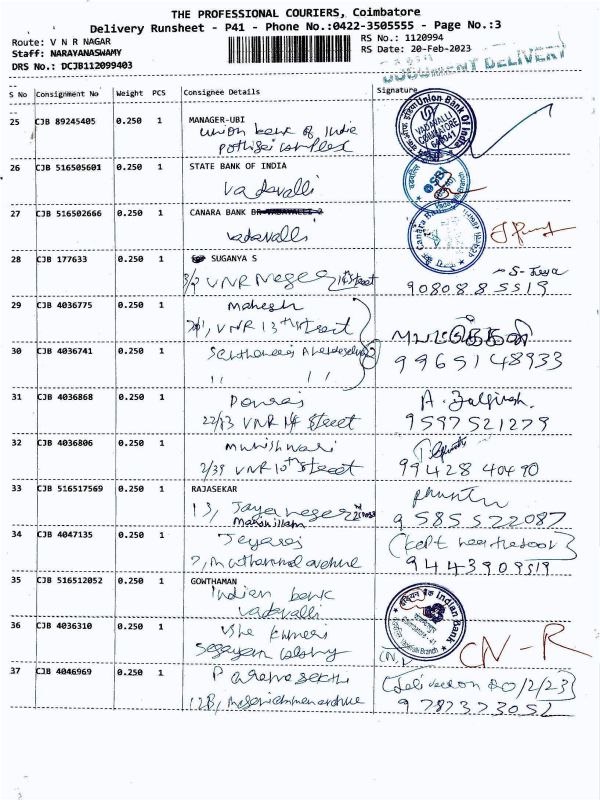 THE PROFESSIONAL COURIERS, Coimbatore
Delivery Runsheet - P41 - Phone No.:0422-3505555 - Page No.:3
Route: V N R NAGAR
RS No.: 1120994
Staff: NARAYANASWAMY
RS Date: 20-Feb-2023
DRS No.: DCJB112099403
DOCUMENT DELIVERY
S No Consignment No Weight PCS Consignee Details Signature
25 CJB 89245405 0.250 1 MANAGER-UBI
union bank of India
complex
Union Bank Of India
VADAVALLI
COIMBATORE
641041
26 CJB 516505601 0.250 1 STATE BANK OF INDIA
vadavalli
SBI
27 CJB 516502666 0.250 1 CANARA BANK BR VADAVALLI 2
vadavalli
28 CJB 177633 0.250 1 SUGANYA S
3/2 VNR Nagar 1st Street
90808 85519
29 CJB 4036775 0.250 1 Mahesh
VNR 13th Street
30 CJB 4036741 0.250 1
99651 48933
31 CJB 4036868 0.250 1 Ponraj
22/83 VNR 14 Street
9597521279
32 CJB 4036806 0.250 1 Munishwari
2/39 VNR 10th Street
99428 40490
33 CJB 516517569 0.250 1 RAJASEKAR
13, Jayanagar
9585522087
34 CJB 4047135 0.250 1 Jeyaraj
7, Muthammal avenue
(Kept near the door)
9443909519
35 CJB 516512052 0.250 1 GOWTHAMAN
Indian bank
vadavalli
Indian Bank
36 CJB 4036310 0.250 1 Usha Kumari
colony
CN-R
37 CJB 4046969 0.250 1
12B,
20/2/23)
9787373052